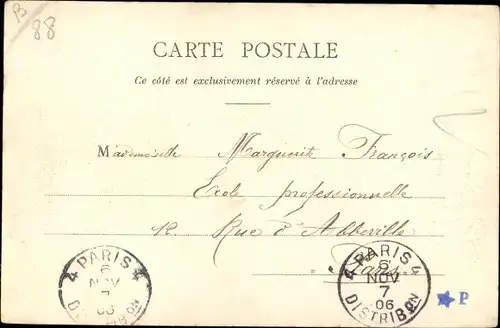 B
88
CARTE POSTALE
Ce côté est exclusivement réservé à l'adresse
Mademoiselle Marguerite François
Ecole professionnelle
12 Rue d'Abbeville
Paris
4 PARIS 4
6
NOV
7
06
DISTRIBON
4 PARIS 4
6
NOV
7
06
DISTRIBON
P